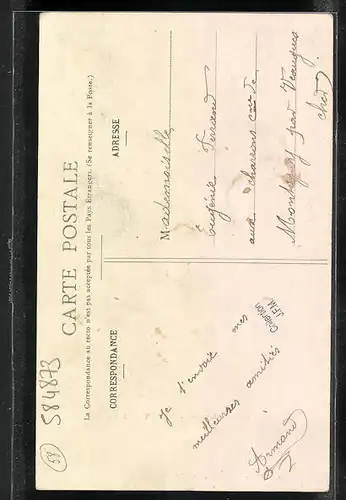 CARTE POSTALE
La Correspondance au recto n'est pas acceptée par tous les Pays Etrangers. (Se renseigner à la Poste.)
CORRESPONDANCE
Je t'envoie mes
meilleures amitiés
Armand
ADRESSE
Mademoiselle
Eugénie Ferrand
aux charrons cne de
Montigny par Veaugues
Cher
Collection
J.F.M.
584873
58